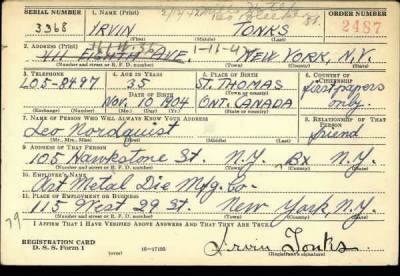 SERIAL NUMBER 1. NAME (Print) ORDER NUMBER
3368 IRVIN TONKS 2487
(First) (Middle) (Last)
2. ADDRESS (Print)
411 EIGHTH AVE. NEW YORK, N.Y.
(Number and street or R. F. D. number) (Town) (County) (State)
3. TELEPHONE 4. AGE IN YEARS 5. PLACE OF BIRTH 6. COUNTRY OF CITIZENSHIP
LO5-8497 35 ST. THOMAS first papers
DATE OF BIRTH (Town or county)
Nov. 10 1904 ONT. CANADA only.
(Exchange) (Number) (Mo.) (Day) (Yr.) (State or country)
7. NAME OF PERSON WHO WILL ALWAYS KNOW YOUR ADDRESS 8. RELATIONSHIP OF THAT PERSON
Leo Nordquist friend
(Mr., Mrs., Miss) (First) (Middle) (Last)
9. ADDRESS OF THAT PERSON
105 Hawkstone St. N.Y. Bx N.Y.
(Number and street or R. F. D. number) (Town) (County) (State)
10. EMPLOYER'S NAME
Art Metal Die Mfg. Co.
11. PLACE OF EMPLOYMENT OR BUSINESS
115 West 29 St. New York, N.Y.
(Number and street or R. F. D. number) (Town) (County) (State)
I AFFIRM THAT I HAVE VERIFIED ABOVE ANSWERS AND THAT THEY ARE TRUE.
REGISTRATION CARD
D. S. S. Form 1 (over) 16—17105 Irvin Tonks
(Registrant's signature)